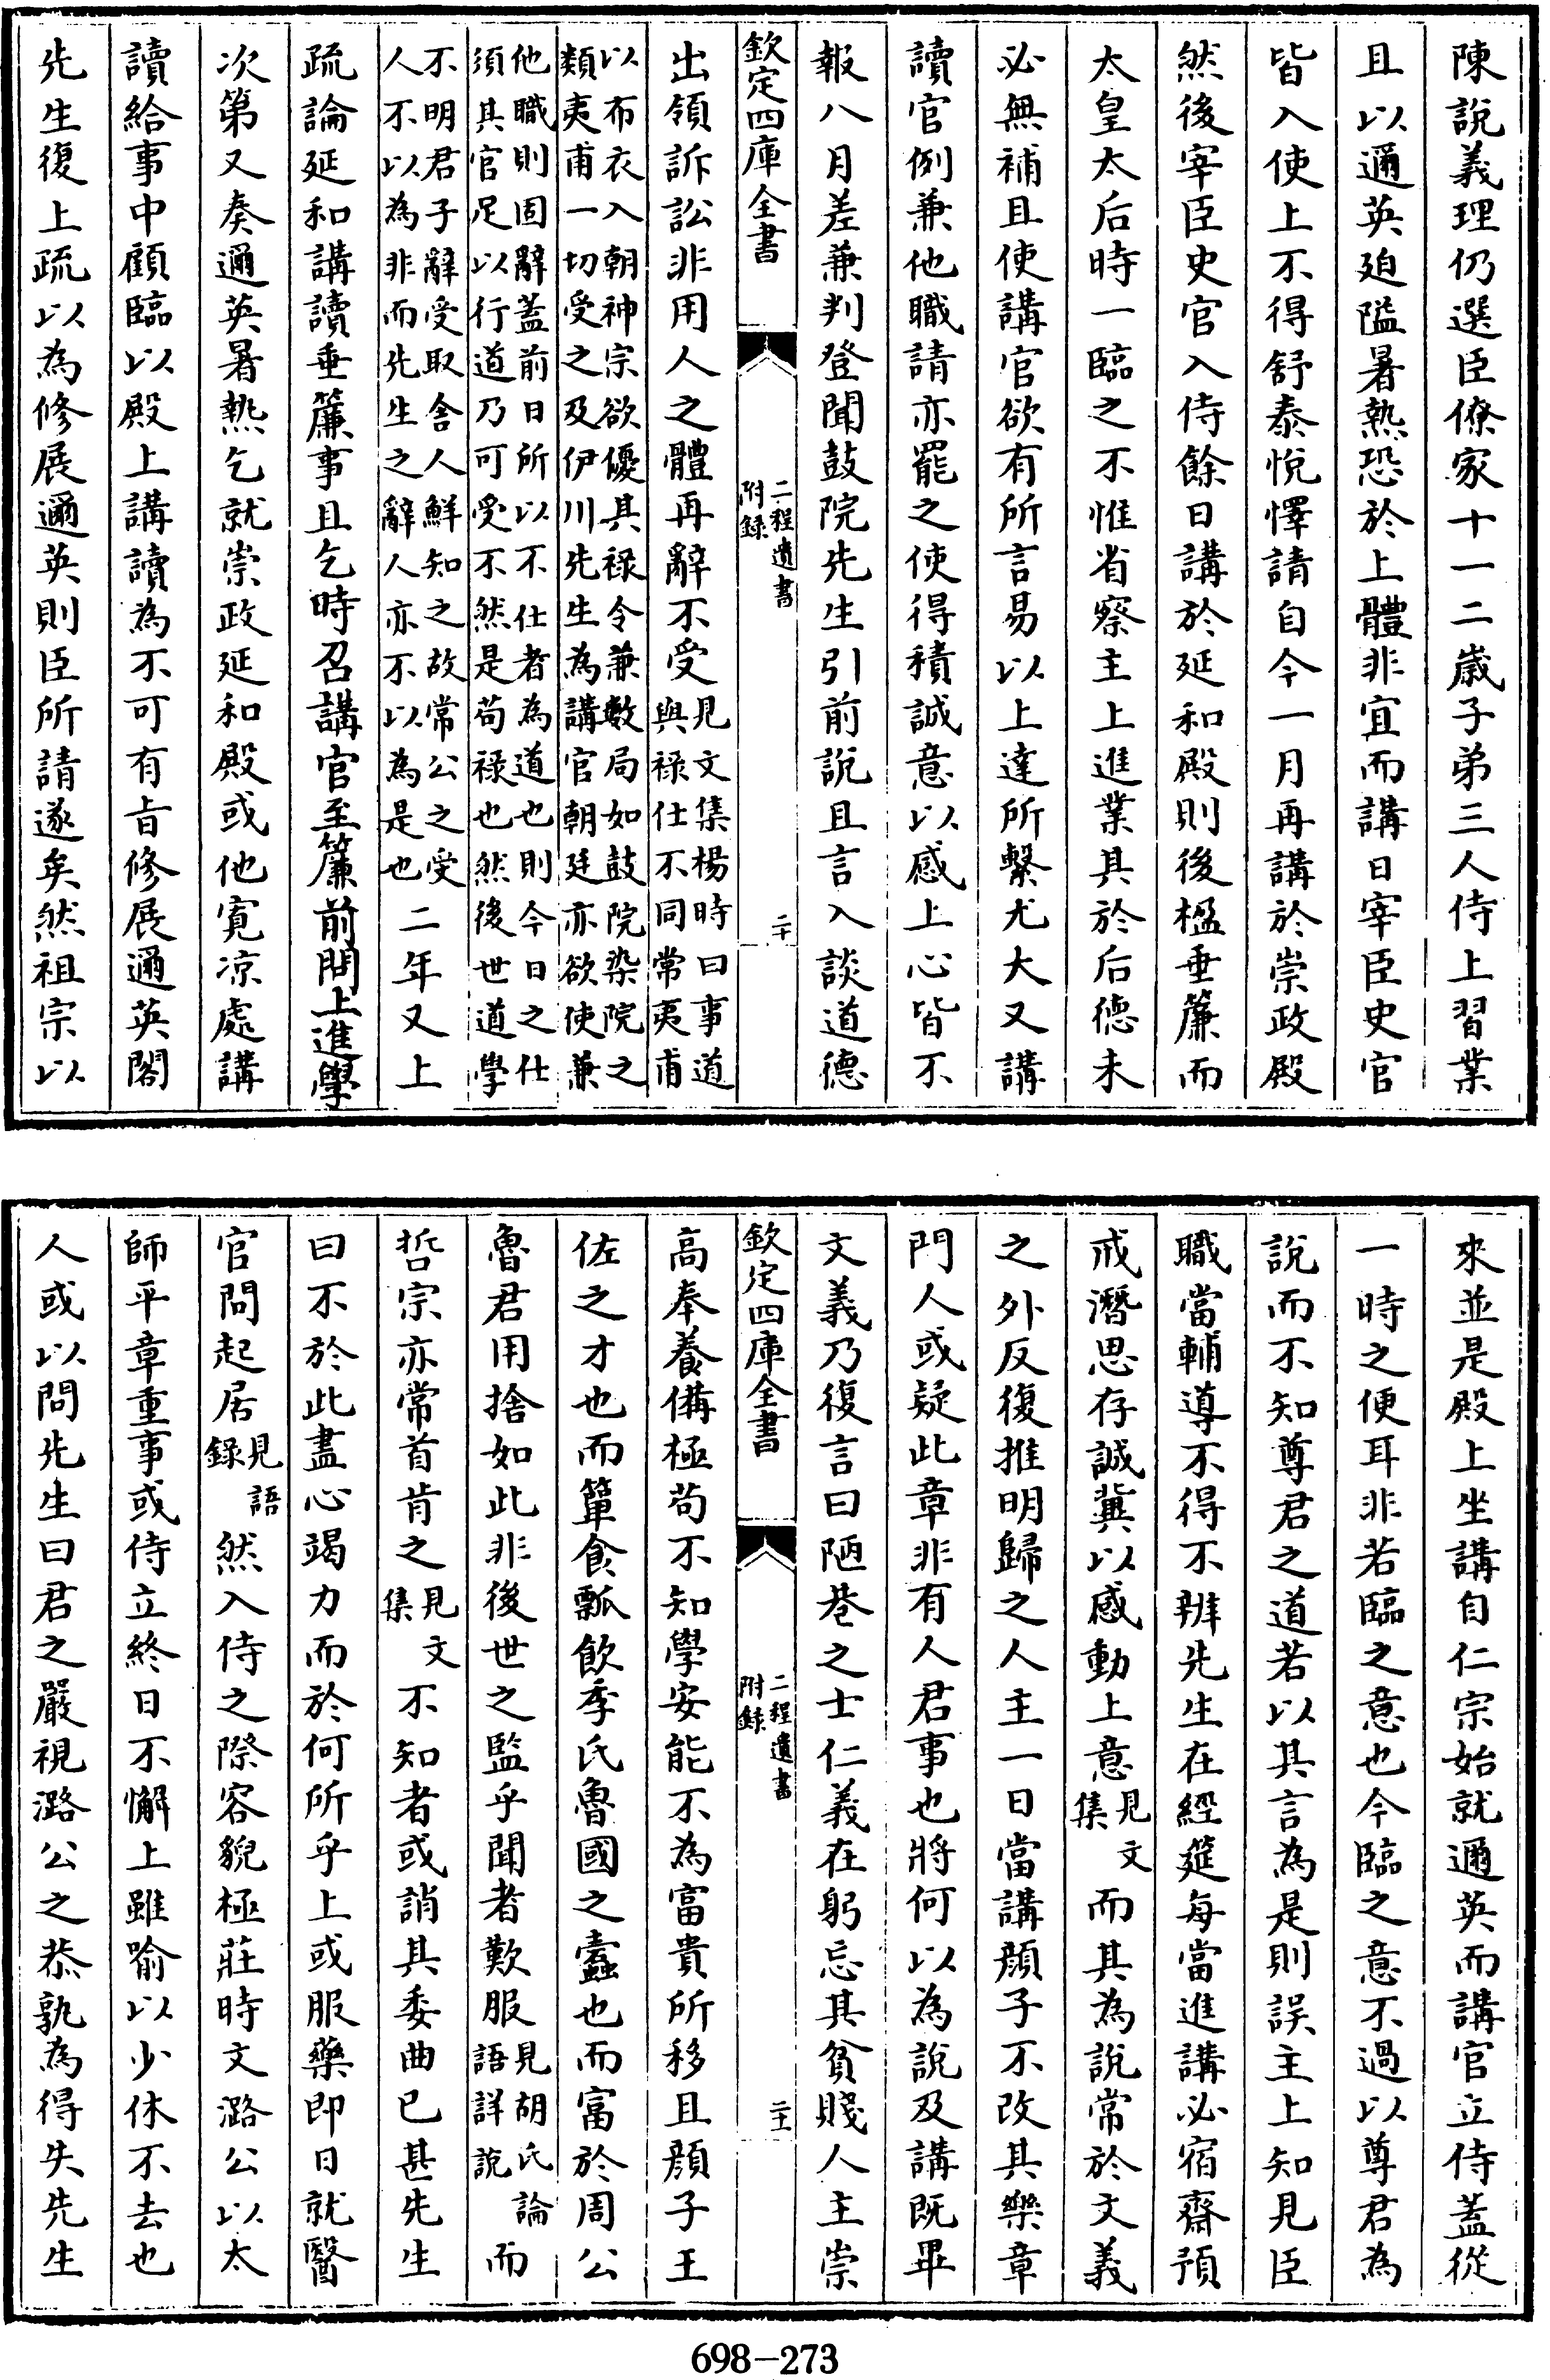 陳説義理仍選臣僚家十一二歲子弟三人侍上習業
且以邇英迫隘暑熱恐於上體非宜而講日宰臣史官
皆入使上不得舒泰悅懌請自今一月再講於崇政殿
然後宰臣史官入侍餘日講於延和殿則後楹垂簾而
太皇太后時一臨之不惟省察主上進業其於后德未
必無補且使講官欲有所言易以上達所繫尤大又講
讀官例兼他職請亦罷之使得積誠意以感上心皆不
報八月差兼判登聞鼓院先生引前説且言入談道德
欽定四庫全書
二程遺書
附録
二十
出領訴訟非用人之體再辭不受見文集楊時曰事道
與祿仕不同常夷甫
以布衣入朝神宗欲優其祿令兼數局如鼓院染院之
類夷甫一切受之及伊川先生為講官朝廷亦欲使兼
他職則固辭蓋前日所以不仕者為道也則今日之仕
須其官足以行道乃可受不然是苟祿也然後世道學
不明君子辭受取舍人鮮知之故常公之受
人不以為非而先生之辭人亦不以為是也二年又上
疏論延和講讀垂簾事且乞時召講官至簾前問上進學
次第又奏邇英暑熱乞就崇政延和殿或他寬涼處講
讀給事中顧臨以殿上講讀為不可有旨修展邇英閣
先生復上疏以為修展邇英則臣所請遂矣然祖宗以
來並是殿上坐講自仁宗始就邇英而講官立侍蓋從
一時之便耳非若臨之意也今臨之意不過以尊君為
説而不知尊君之道若以其言為是則誤主上知見臣
職當輔導不得不辨先生在經筵每當進講必宿齋預
戒潛思存誠冀以感動上意見文
集而其為説常於文義
之外反復推明歸之人主一日當講顔子不改其樂章
門人或疑此章非有人君事也將何以為説及講既畢
文義乃復言曰陋巷之士仁義在躬忘其貧賤人主崇
欽定四庫全書
二程遺書
附録
二十一
高奉養備極苟不知學安能不為富貴所移且顔子王
佐之才也而簞食瓢飲季氏魯國之蠹也而富於周公
魯君用捨如此非後世之監乎聞者歎服見胡氏論
語詳説而
哲宗亦常首肯之見文
集不知者或誚其委曲已甚先生
曰不於此盡心竭力而於何所乎上或服藥即日就醫
官問起居見語
錄然入侍之際容貌極莊時文潞公以太
師平章重事或侍立終日不懈上雖喻以少休不去也
人或以問先生曰君之嚴視潞公之恭孰為得失先生
698-273